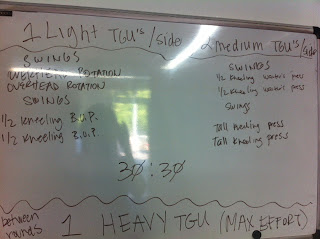 1 Light TGU's/side
SWINGS
OVERHEAD ROTATION
OVERHEAD ROTATION
SWINGS
1/2 kneeling B.U.P.
1/2 kneeling B.U.P.
2 medium TGU's/side
SWINGS
1/2 kneeling waiter's press
1/2 kneeling waiter's press
Swings
Tall kneeling press
Tall kneeling press
30:30
between rounds 1 HEAVY TGU (MAX EFFORT)